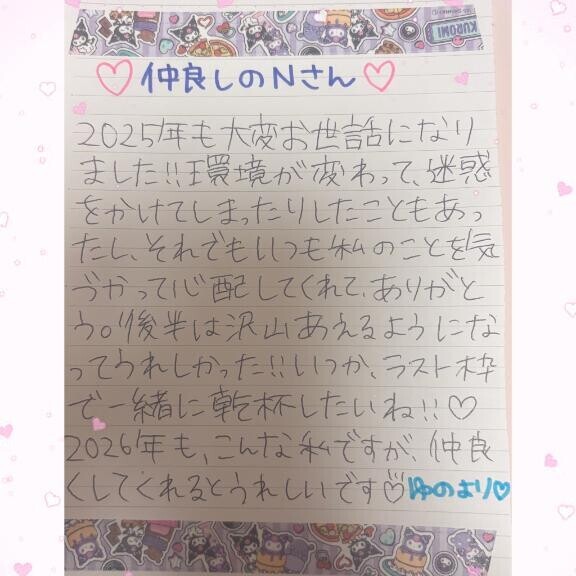 KUROMI
仲良しのNさん
2025年も大変お世話になり
ました!!環境が変わって、迷惑
をかけてしまったりしたこともあっ
たし、それでもいつも私のことを気
づかって心配してくれて、ありがと
う。後半は沢山あえるようにな
ってうれしかった!!いつか、ラスト枠
で一緒に乾杯したいね!!♡
2026年も、こんな私ですが、仲良
くしてくれるとうれしいです♡ゆのより♡